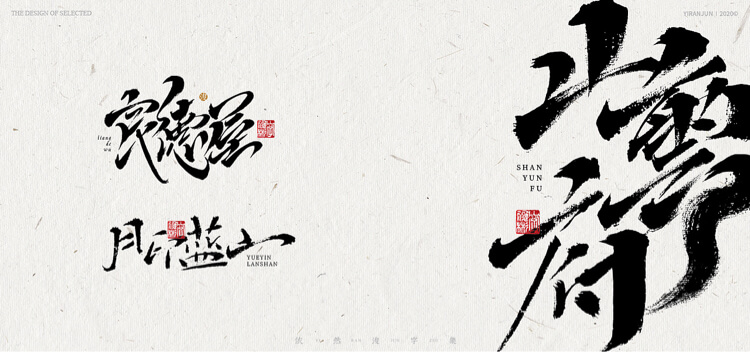 THE DESIGN OF SELECTED
YIRANJUN | 2020©
良德屋
liang
de
wu
月印蓝山
YUEYIN
LANSHAN
山雲府
SHAN
YUN
FU